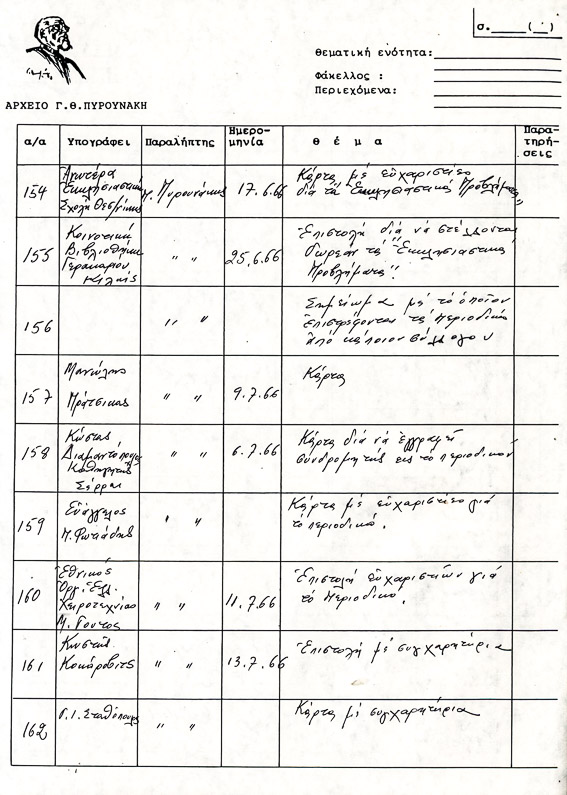 σ.____(__)
Θεματική ενότητα:
Φάκελλος :
Περιεχόμενα:
ΑΡΧΕΙΟ Γ.Θ.ΠΥΡΟΥΝΑΚΗ
α/α Υπογράφει Παραλήπτης Ημερομηνία θέμα Παρατηρήσεις
154 Ἀνωτέρα Ἐκκλησιαστική Σχολή Θεσ/νίκης Γ. Πυρουνάκης 17.6.66 Κάρτα μέ εὐχαριστίες διά τά "Ἐκκλησιαστικά Προβλήματα"
155 Κοινοτική Βιβλιοθήκη Γερακαριου Κιλκίς " " 25.6.66 Ἐπιστολή διά νά στέλλονται δωρεάν τά "Ἐκκλησιαστικά Προβλήματα".
156 " " Σημείωμα μέ τό ὁποῖον ἐπιστρέφονται τά περιοδικά ἀπό κάποιον σύλλογο
157 Μανώλης Πράτσικας " " 9.7.66 Κάρτα
158 Κώστας Διαμαντόπουλος Καθηγητής Σέρραι " " 6.7.66 Κάρτα διά νά ἐγγραφεῖ συνδρομητής εις τό περιοδικόν
159 Εὐάγγελος Φωτιάδης " " Κάρτα μέ εὐχαριστίες γιά τό περιοδικό.
160 Ἐθνικός Ὀργ. Ἑλλ. Χειροτεχνίας Μ. Γούτος " " 11.7.66 Ἐπιστολή εὐχαριστιῶν γιά τό περιοδικό.
161 Κωστῆς Κοκόροβιτς " " 13.7.66 Ἐπιστολή μέ συγχαρητήρια
162 Γ.Ι. Σταθόπουλος " " Κάρτα μέ συγχαρητήρια